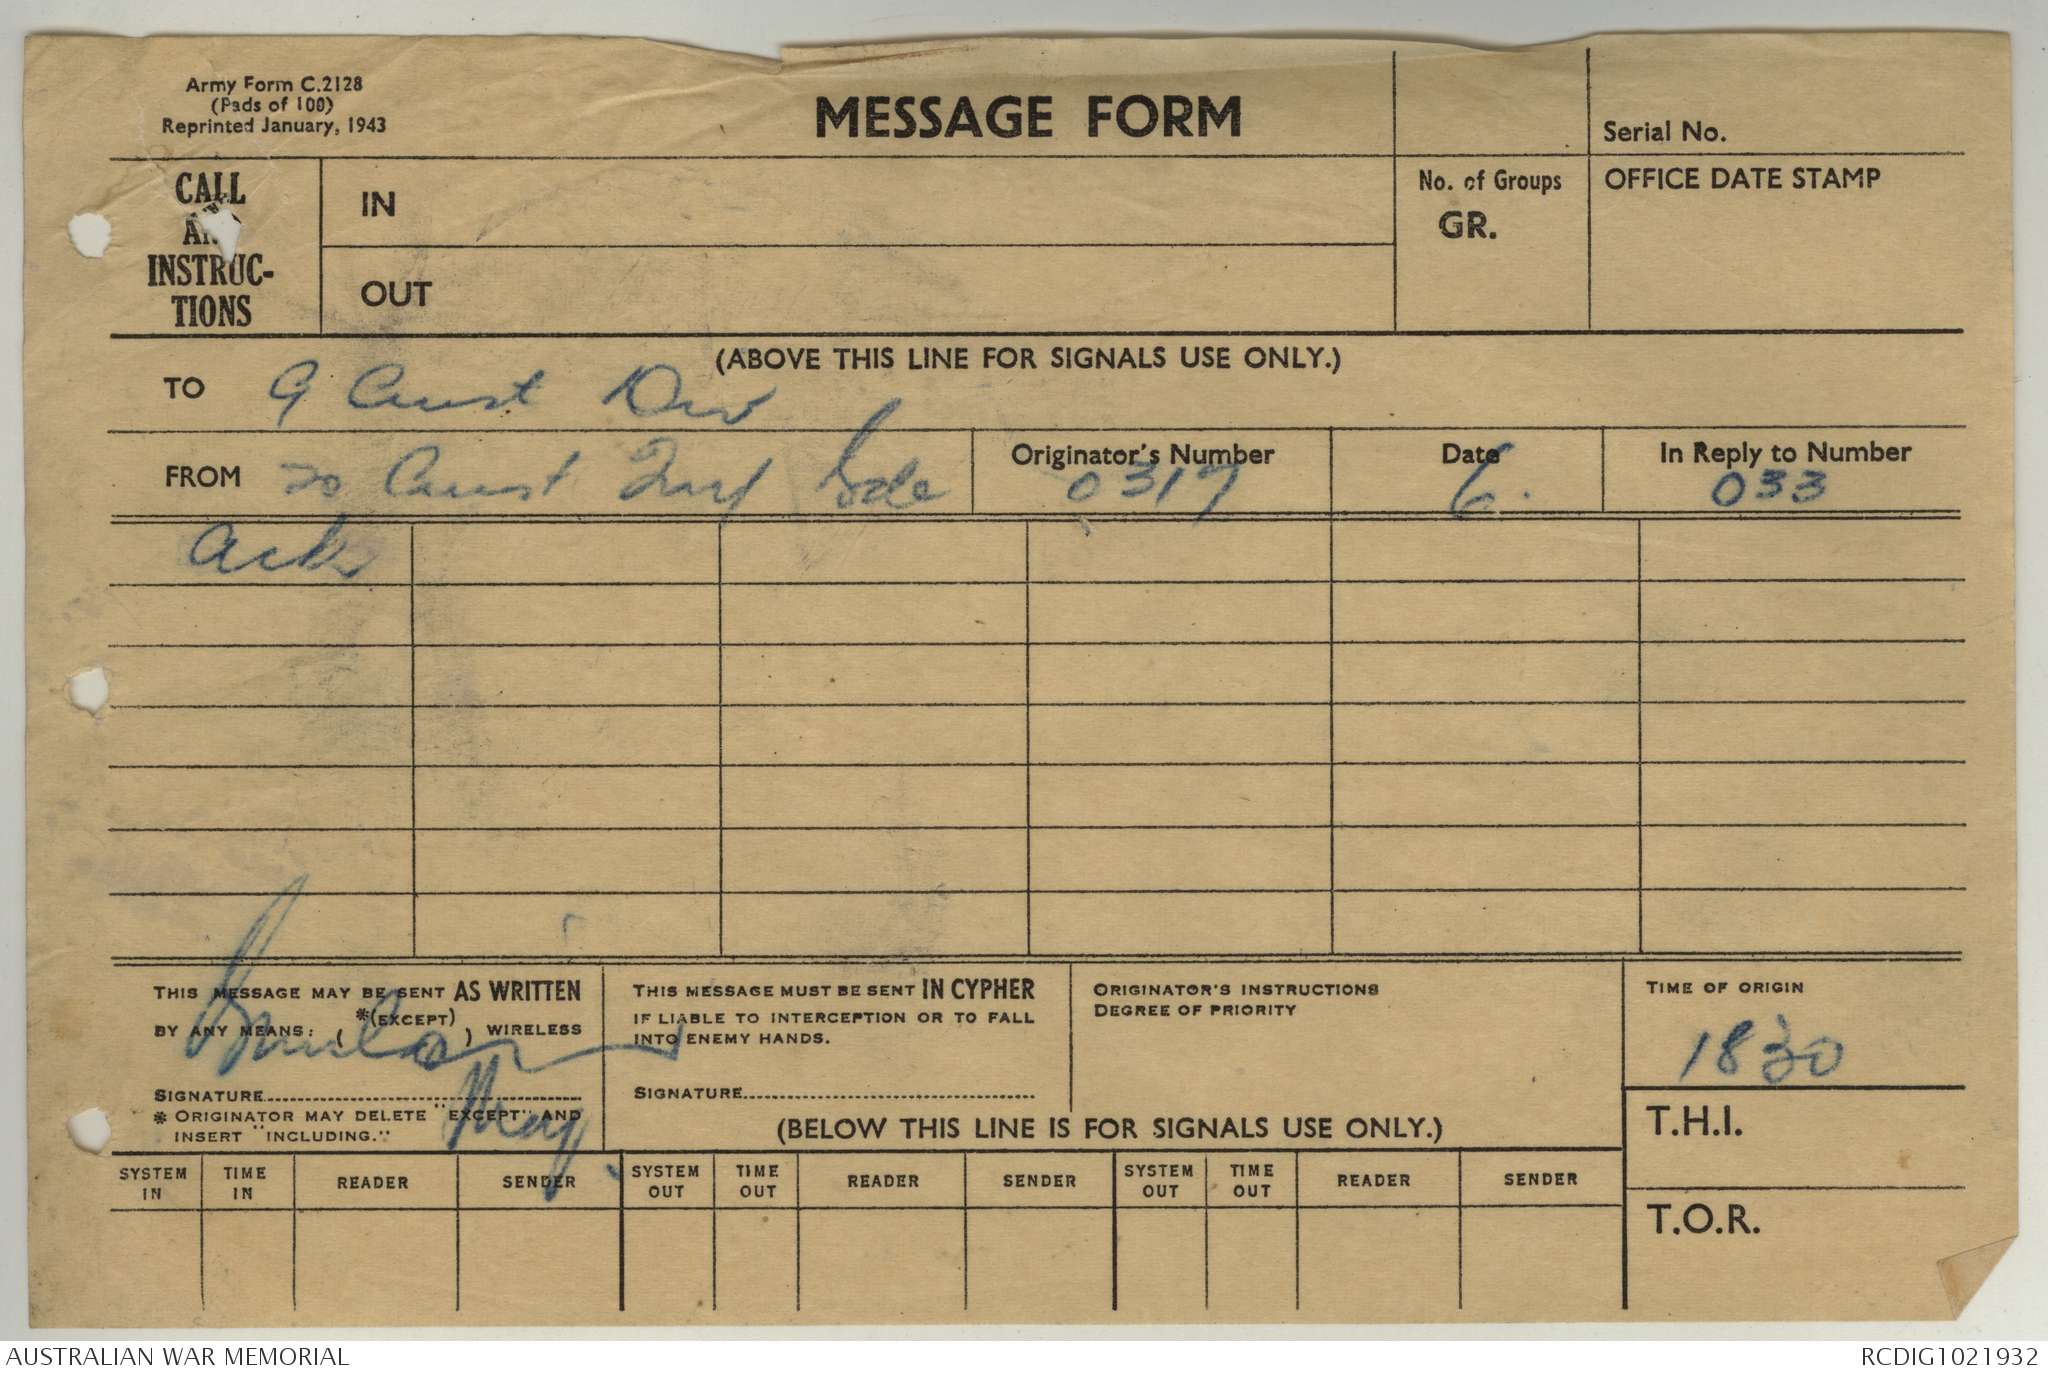 Army Form C.2128
(Pads of 100)
Reprinted January, 1943
MESSAGE FORM
Serial No.
CALL
AND
INSTRUC-
TIONS
IN
OUT
No. of Groups
GR.
OFFICE DATE STAMP
(ABOVE THIS LINE FOR SIGNALS USE ONLY.)
TO 9 Aust Div
FROM 20 Aust Inf Bde
Originator's Number
0317
Date
6.
In Reply to Number
033
Ack
THIS MESSAGE MAY BE SENT AS WRITTEN
BY ANY MEANS: ( *(EXCEPT) ) WIRELESS
SIGNATURE
* ORIGINATOR MAY DELETE "EXCEPT" AND
INSERT "INCLUDING."
Maj
THIS MESSAGE MUST BE SENT IN CYPHER
IF LIABLE TO INTERCEPTION OR TO FALL
INTO ENEMY HANDS.
SIGNATURE
ORIGINATOR'S INSTRUCTIONS
DEGREE OF PRIORITY
TIME OF ORIGIN
1830
(BELOW THIS LINE IS FOR SIGNALS USE ONLY.)
T.H.I.
T.O.R.
SYSTEM IN TIME IN READER SENDER SYSTEM OUT TIME OUT READER SENDER SYSTEM OUT TIME OUT READER SENDER
AUSTRALIAN WAR MEMORIAL
RCDIG1021932